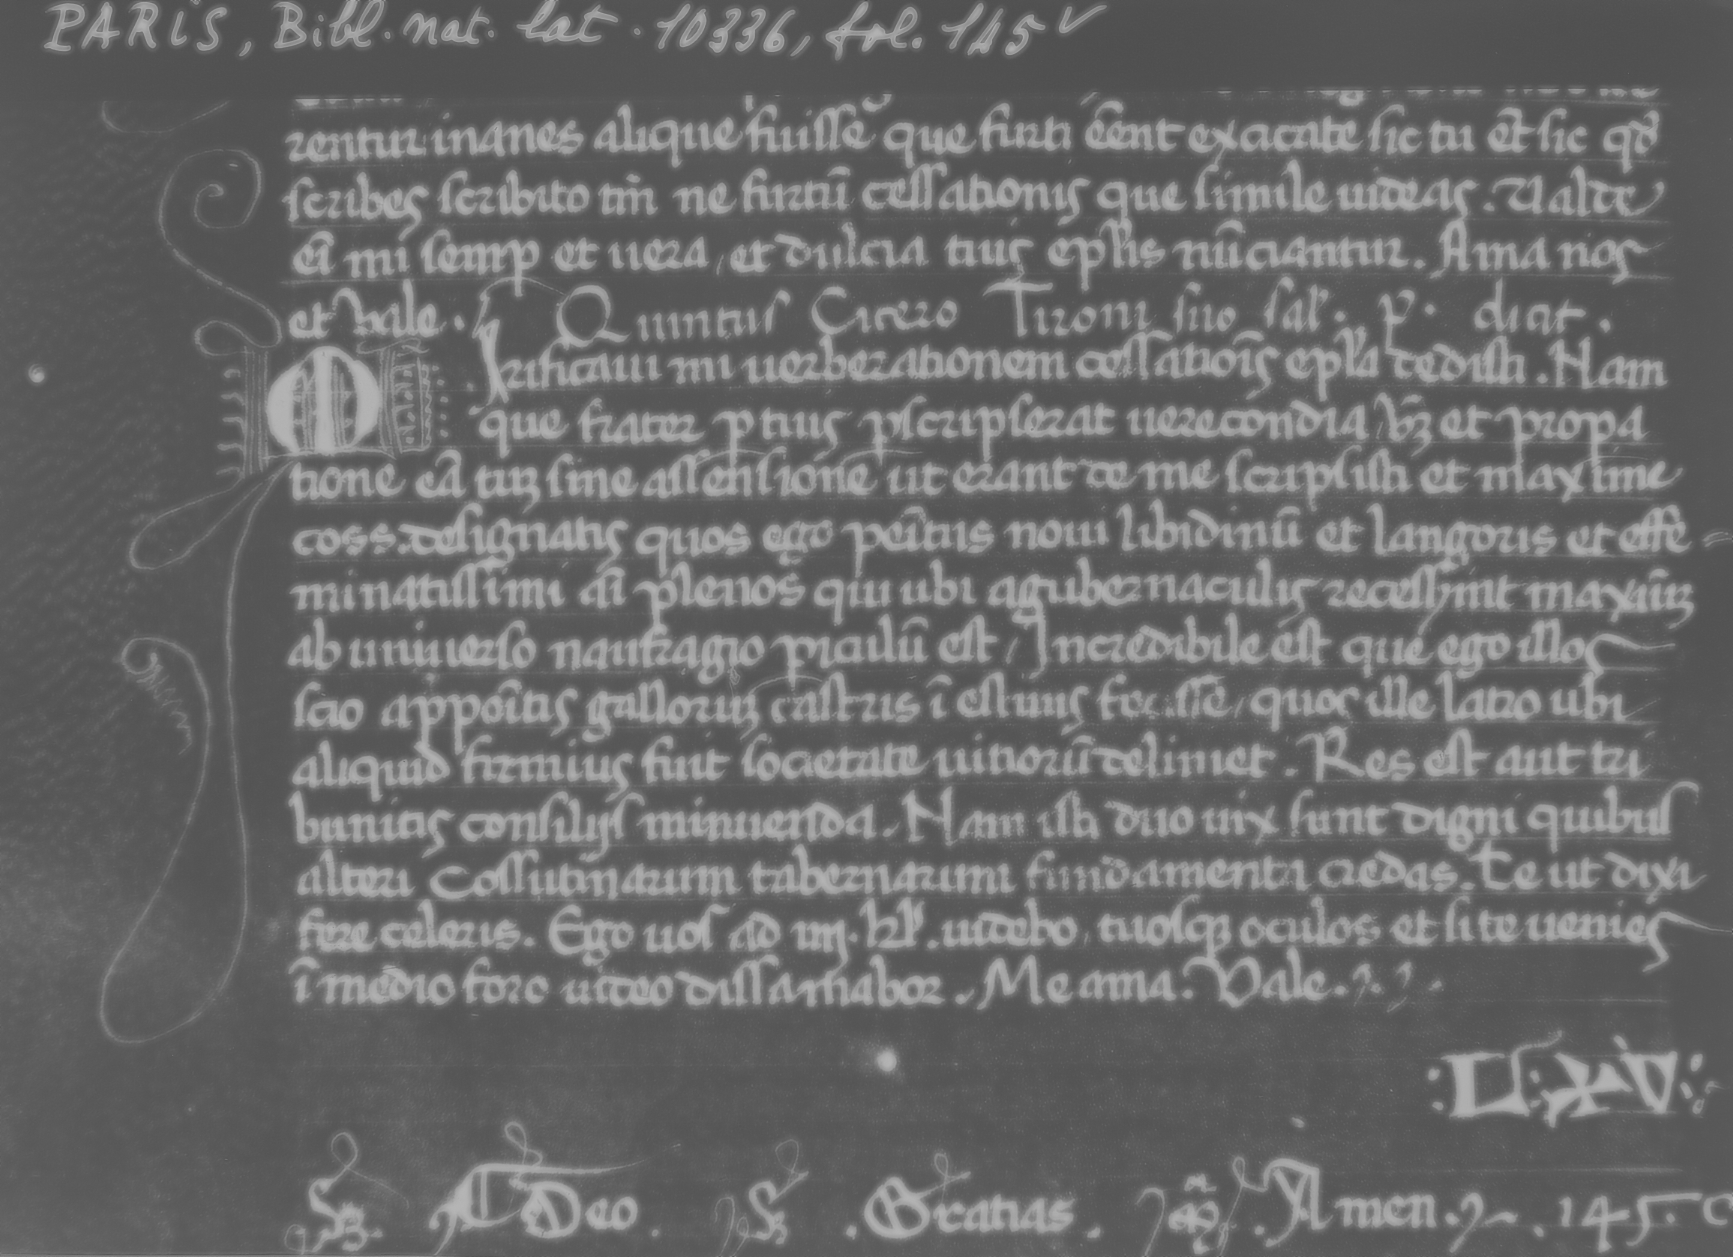 PARIS, Bibl. nat. lat. 10336, fol. 145v
rentur inanes alique fuisse que furti eēnt exacrite sic tu et sic qd̄
scribes scribito tn̄ ne furtū cessationis que simile uideas. Valde
eā mi semp et uera, et dulcia tuis eplīs nūciantur. Ama nos
et Vale. Quintus Cicero Tironi suo sal. p. dicit.
Mirificaui mi uerberationem cessatiōis eplā dedisti. Nam
que frater ptius pscripserat uerecondia et propa
tione eā tuz sine assensione ut erant de me scripsisti et maxime
coss. designatis quos ego peītus noui libidinū et langoris et effe=
minatissimi aī plenos qui ubi agubernaculis recesserint maxiūz
ab uniuerso naufragio piculū est, Incredibile est que ego illos
scio appōitis galloruz castris ī estiuis fecisse, quos ille latro ubi
aliquid firmius fuit societate uitiorū deliniet. Res est aut tri
bunitis consiliis minuenda. Nam isti duo uix sunt digni quibus
alteri Cossutinarum tabernarum fundamenta credas. Te ut dixi
fero celeris. Ego uos ad iiij. kl. uidebo, tuosq; oculos et si te uenies
ī medio foro uideo dissaniabor. Me ama. Vale.
Deo. Gratias. Amen. 1450